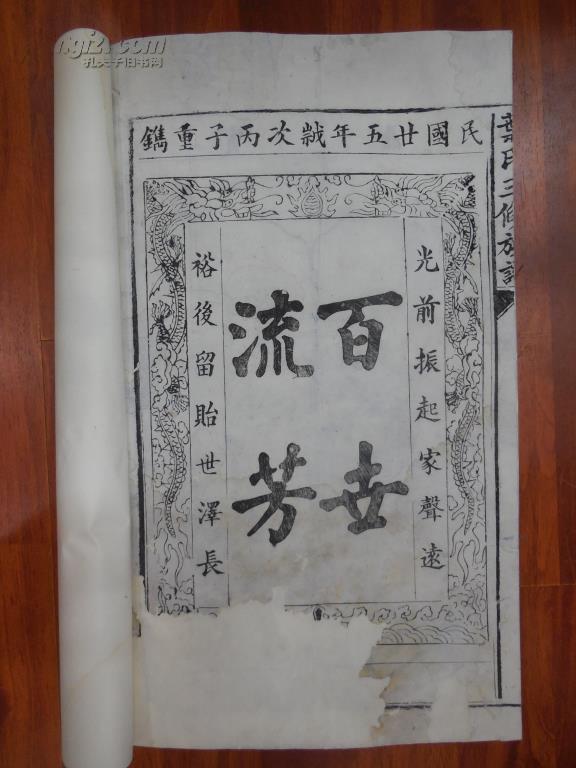 民國廿五年歲次丙子重鐫
葉氏三修族譜
光前振起家聲遠
百世
流芳
裕後留貽世澤長
孔夫子旧书网